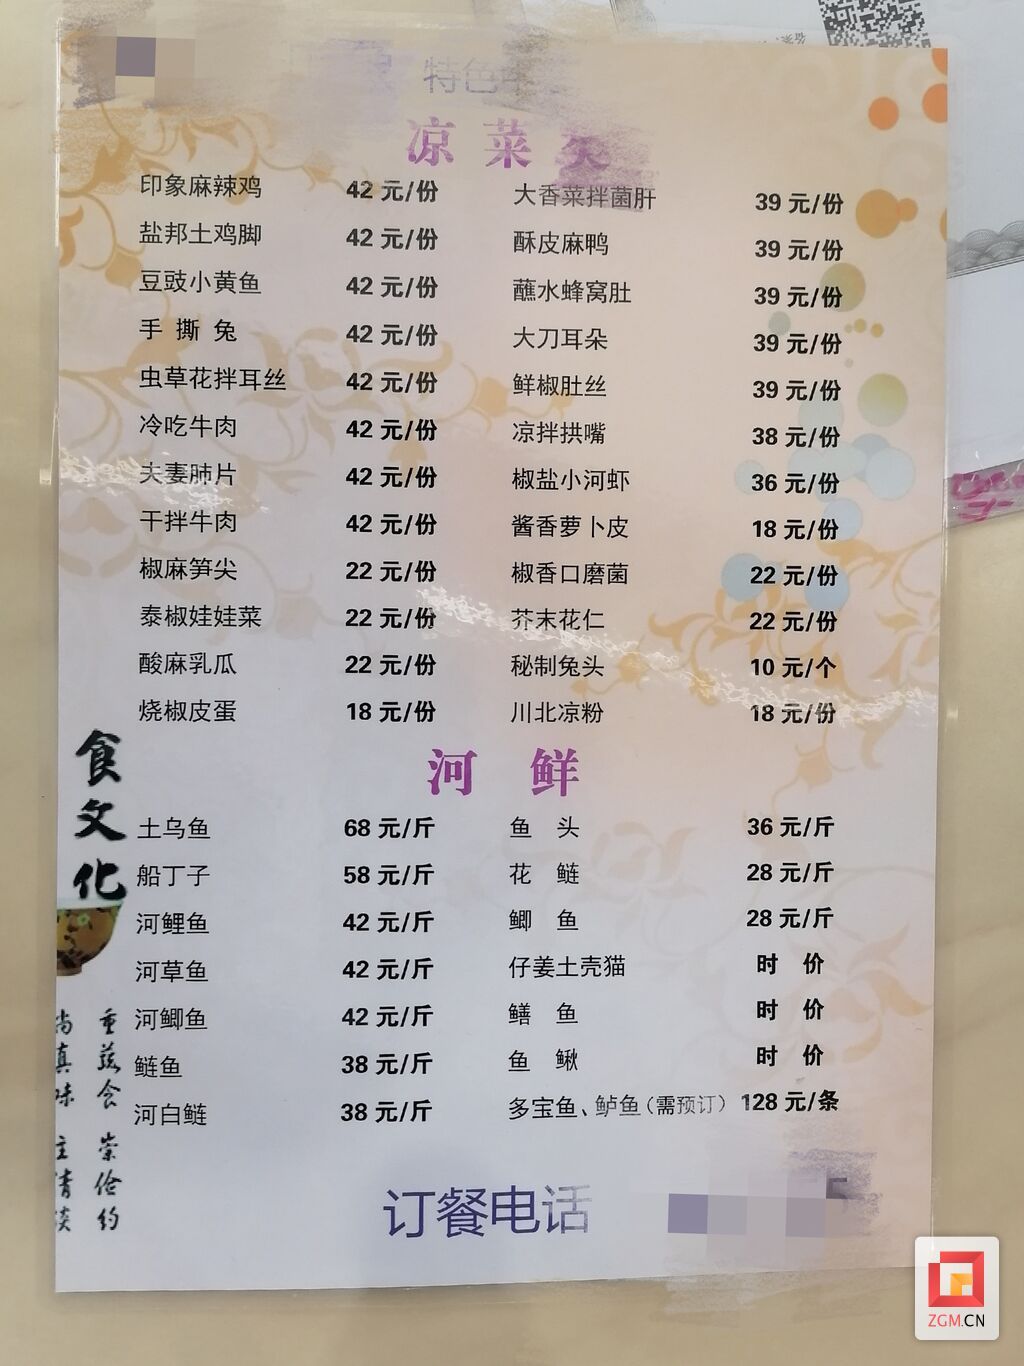 特色
凉菜类
印象麻辣鸡 42 元/份 大香菜拌菌肝 39 元/份
盐邦土鸡脚 42 元/份 酥皮麻鸭 39 元/份
豆豉小黄鱼 42 元/份 蘸水蜂窝肚 39 元/份
手 撕 兔 42 元/份 大刀耳朵 39 元/份
虫草花拌耳丝 42 元/份 鲜椒肚丝 39 元/份
冷吃牛肉 42 元/份 凉拌拱嘴 38 元/份
夫妻肺片 42 元/份 椒盐小河虾 36 元/份
干拌牛肉 42 元/份 酱香萝卜皮 18 元/份
椒麻笋尖 22 元/份 椒香口磨菌 22 元/份
泰椒娃娃菜 22 元/份 芥末花仁 22 元/份
酸麻乳瓜 22 元/份 秘制兔头 10 元/个
烧椒皮蛋 18 元/份 川北凉粉 18 元/份
河 鲜
土乌鱼 68 元/斤 鱼 头 36 元/斤
船丁子 58 元/斤 花 鲢 28 元/斤
河鲤鱼 42 元/斤 鲫 鱼 28 元/斤
河草鱼 42 元/斤 仔姜土壳猫 时 价
河鲫鱼 42 元/斤 鳝 鱼 时 价
鲢鱼 38 元/斤 鱼 鳅 时 价
河白鲢 38 元/斤 多宝鱼、鲈鱼（需预订） 128 元/条
食文化
重蔬食 崇俭约
尚真味 主清淡
订餐电话
ZGM.CN